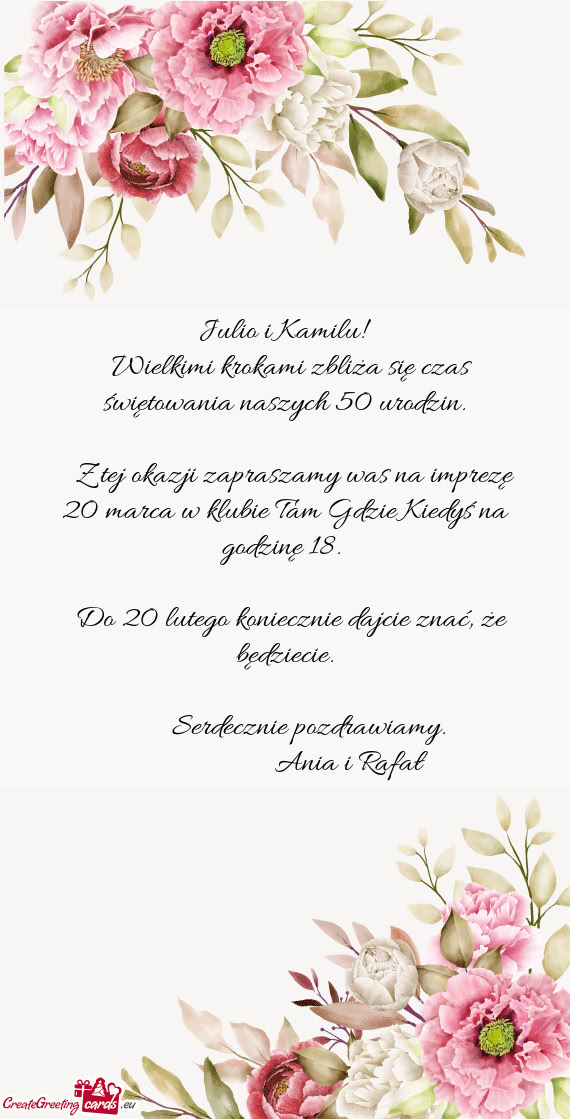 Julio i Kamilu!
Wielkimi krokami zbliża się czas
świętowania naszych 50 urodzin.
Z tej okazji zapraszamy was na imprezę
20 marca w klubie Tam Gdzie Kiedyś na
godzinę 18.
Do 20 lutego koniecznie dajcie znać, że
będziecie.
Serdecznie pozdrawiamy.
Ania i Rafał
CreateGreeting cards .eu